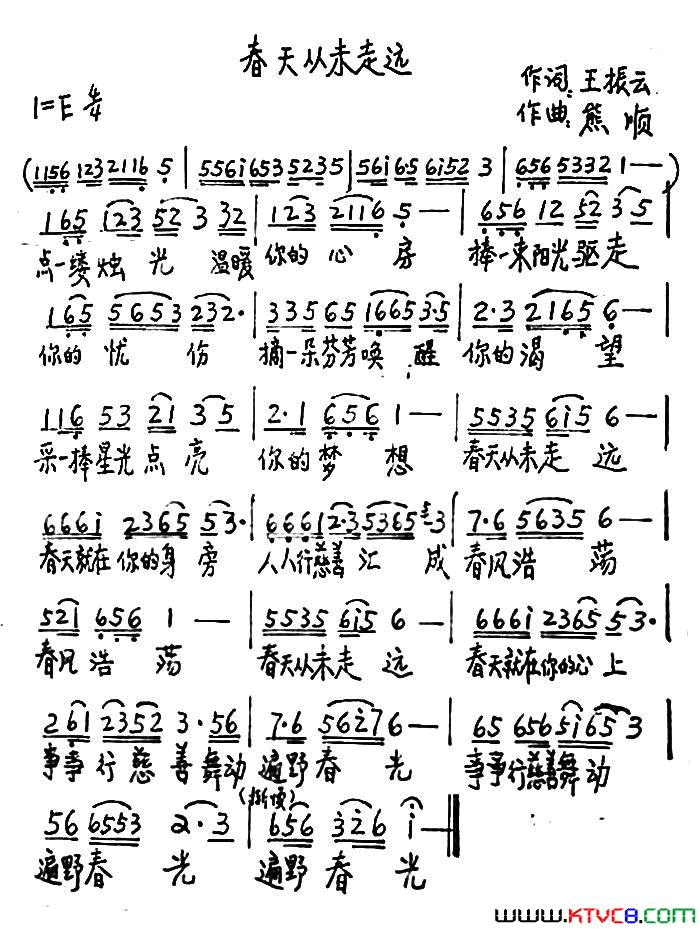 春天从未走远
作词:王振云
作曲:熊顺
1=E 4/4
(1156 123 2116 5 | 556i 653 5235 | 56i 6·5 6i52 3 | 656 5332 1— —)
165 123 52 3 32 | 123 2116 5— | 656 12 52 35
点一缕烛光 温暖你的心房 捧一束阳光驱走
165 5653 232· | 335 65 16653·5 | 2·3 2165 6—
你的忧伤 摘一朵芬芳唤醒 你的渴望
116 53 21 35 | 2·1 656 1— | 5535 6i5 6—
采一捧星光点亮 你的梦想 春天从未走远
666i 2365 53· | 6661 2·3 5365 3 | 7·6 5635 6—
春天就在你的身旁 人人行慈善汇成 春风浩荡
521 656 1— | 5535 6i5 6— | 666i 2365 53·
春风浩荡 春天从未走远 春天就在你的心上
261 2352 3·56 | 7·6 56i76— | 65 656 5i65 3
事事行慈善舞动 遍野春光 事事行慈善舞动
(渐慢)
56 6553 2·3 | 656 326 i—
遍野春光 遍野春光
WWW.KTVC8.COM